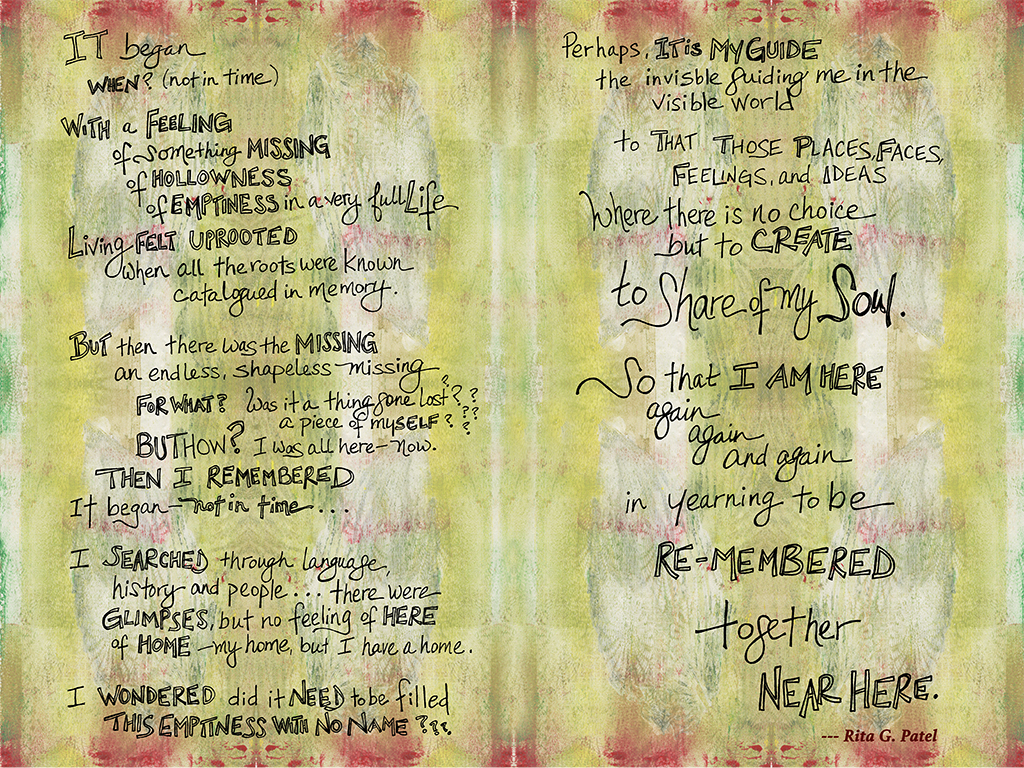 IT began
WHEN? (not in time)
WITH a FEELING
of something MISSING
of HOLLOWNESS
of EMPTINESS in a very full Life
Living FELT UPROOTED
when all the roots were known
catalogued in memory.
BUT then there was the MISSING
an endless, shapeless missing
FOR WHAT? Was it a thing gone lost????
a piece of mySELF????
BUT HOW? I was all here – now.
THEN I REMEMBERED
It began – not in time...
I SEARCHED through language,
history and people... there were
GLIMPSES, but no feeling of HERE
of HOME – my home, but I have a home.
I WONDERED did it NEED to be filled
THIS EMPTINESS WITH NO NAME???.
Perhaps, IT is MY GUIDE
the invisble guiding me in the
visible world
to THAT THOSE PLACES, FACES,
FEELINGS, and IDEAS
Where there is no choice
but to CREATE
to Share of my Soul.
So that I AM HERE
again
again
and again
in yearning to be
RE-MEMBERED
together
NEAR HERE.
--- Rita G. Patel